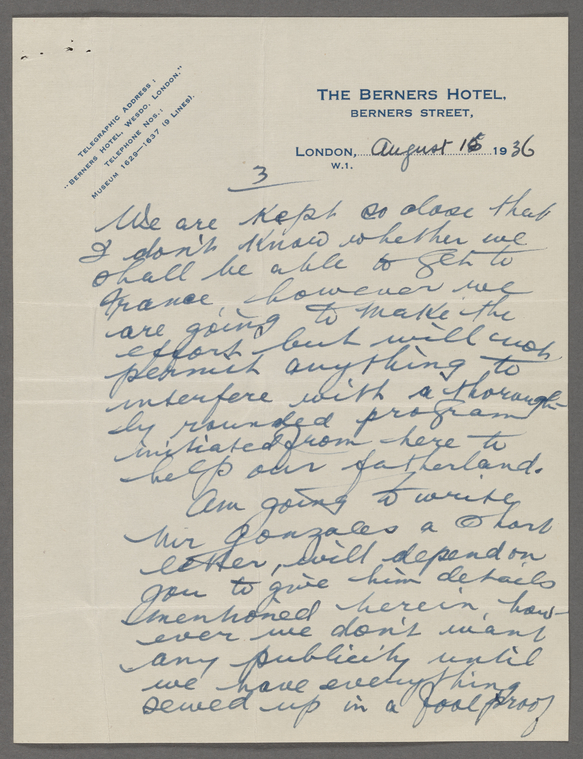 TELEGRAPHIC ADDRESS:
"BERNERS HOTEL, WESDO, LONDON."
TELEPHONE NOS.:
MUSEUM 1629–1637 (9 LINES).
THE BERNERS HOTEL,
BERNERS STREET,
LONDON, August 15 1936
W.1.
3
We are kept so close that
I don't know whether we
shall be able to get to
France, however we
are going to make the
effort, but will not
permit anything to
interfere with a thorough-
ly rounded program
initiated from here to
help our fatherland.
Am going to write
Mr Gonzales a short
letter, will depend on
you to give him details
mentioned herein, how-
ever we don't want
any publicity until
we have everything
sewed up in a fool proof